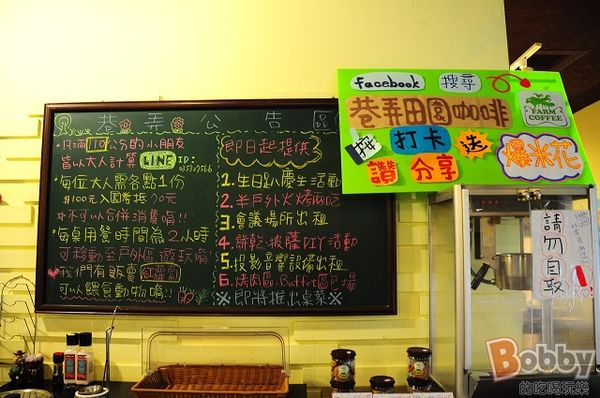 巷弄公告區
凡滿110公分的小朋友
皆以大人計算 LINE ID:
•每位大人需各點1份
$100元入園券抵70元
*不可以合併消費唷!!
•每桌用餐時間為2小時
可移動至戶外區遊玩唷
我們有販賣紅蘿蔔
可以餵食動物唷!!
即日起提供
1.生日趴慶生活動
2.半戶外火烤兩吃
3.會議場所出租
4.餅乾披薩DIY活動
5.投影音響設備出租
6.烤肉區.Buffet區
※即將推出桌菜※
facebook 搜尋
巷弄田園咖啡
FARM
COFFEE
按 打卡 送
讚 分享 爆米花
請勿自取
Bobby
的吃喝玩樂